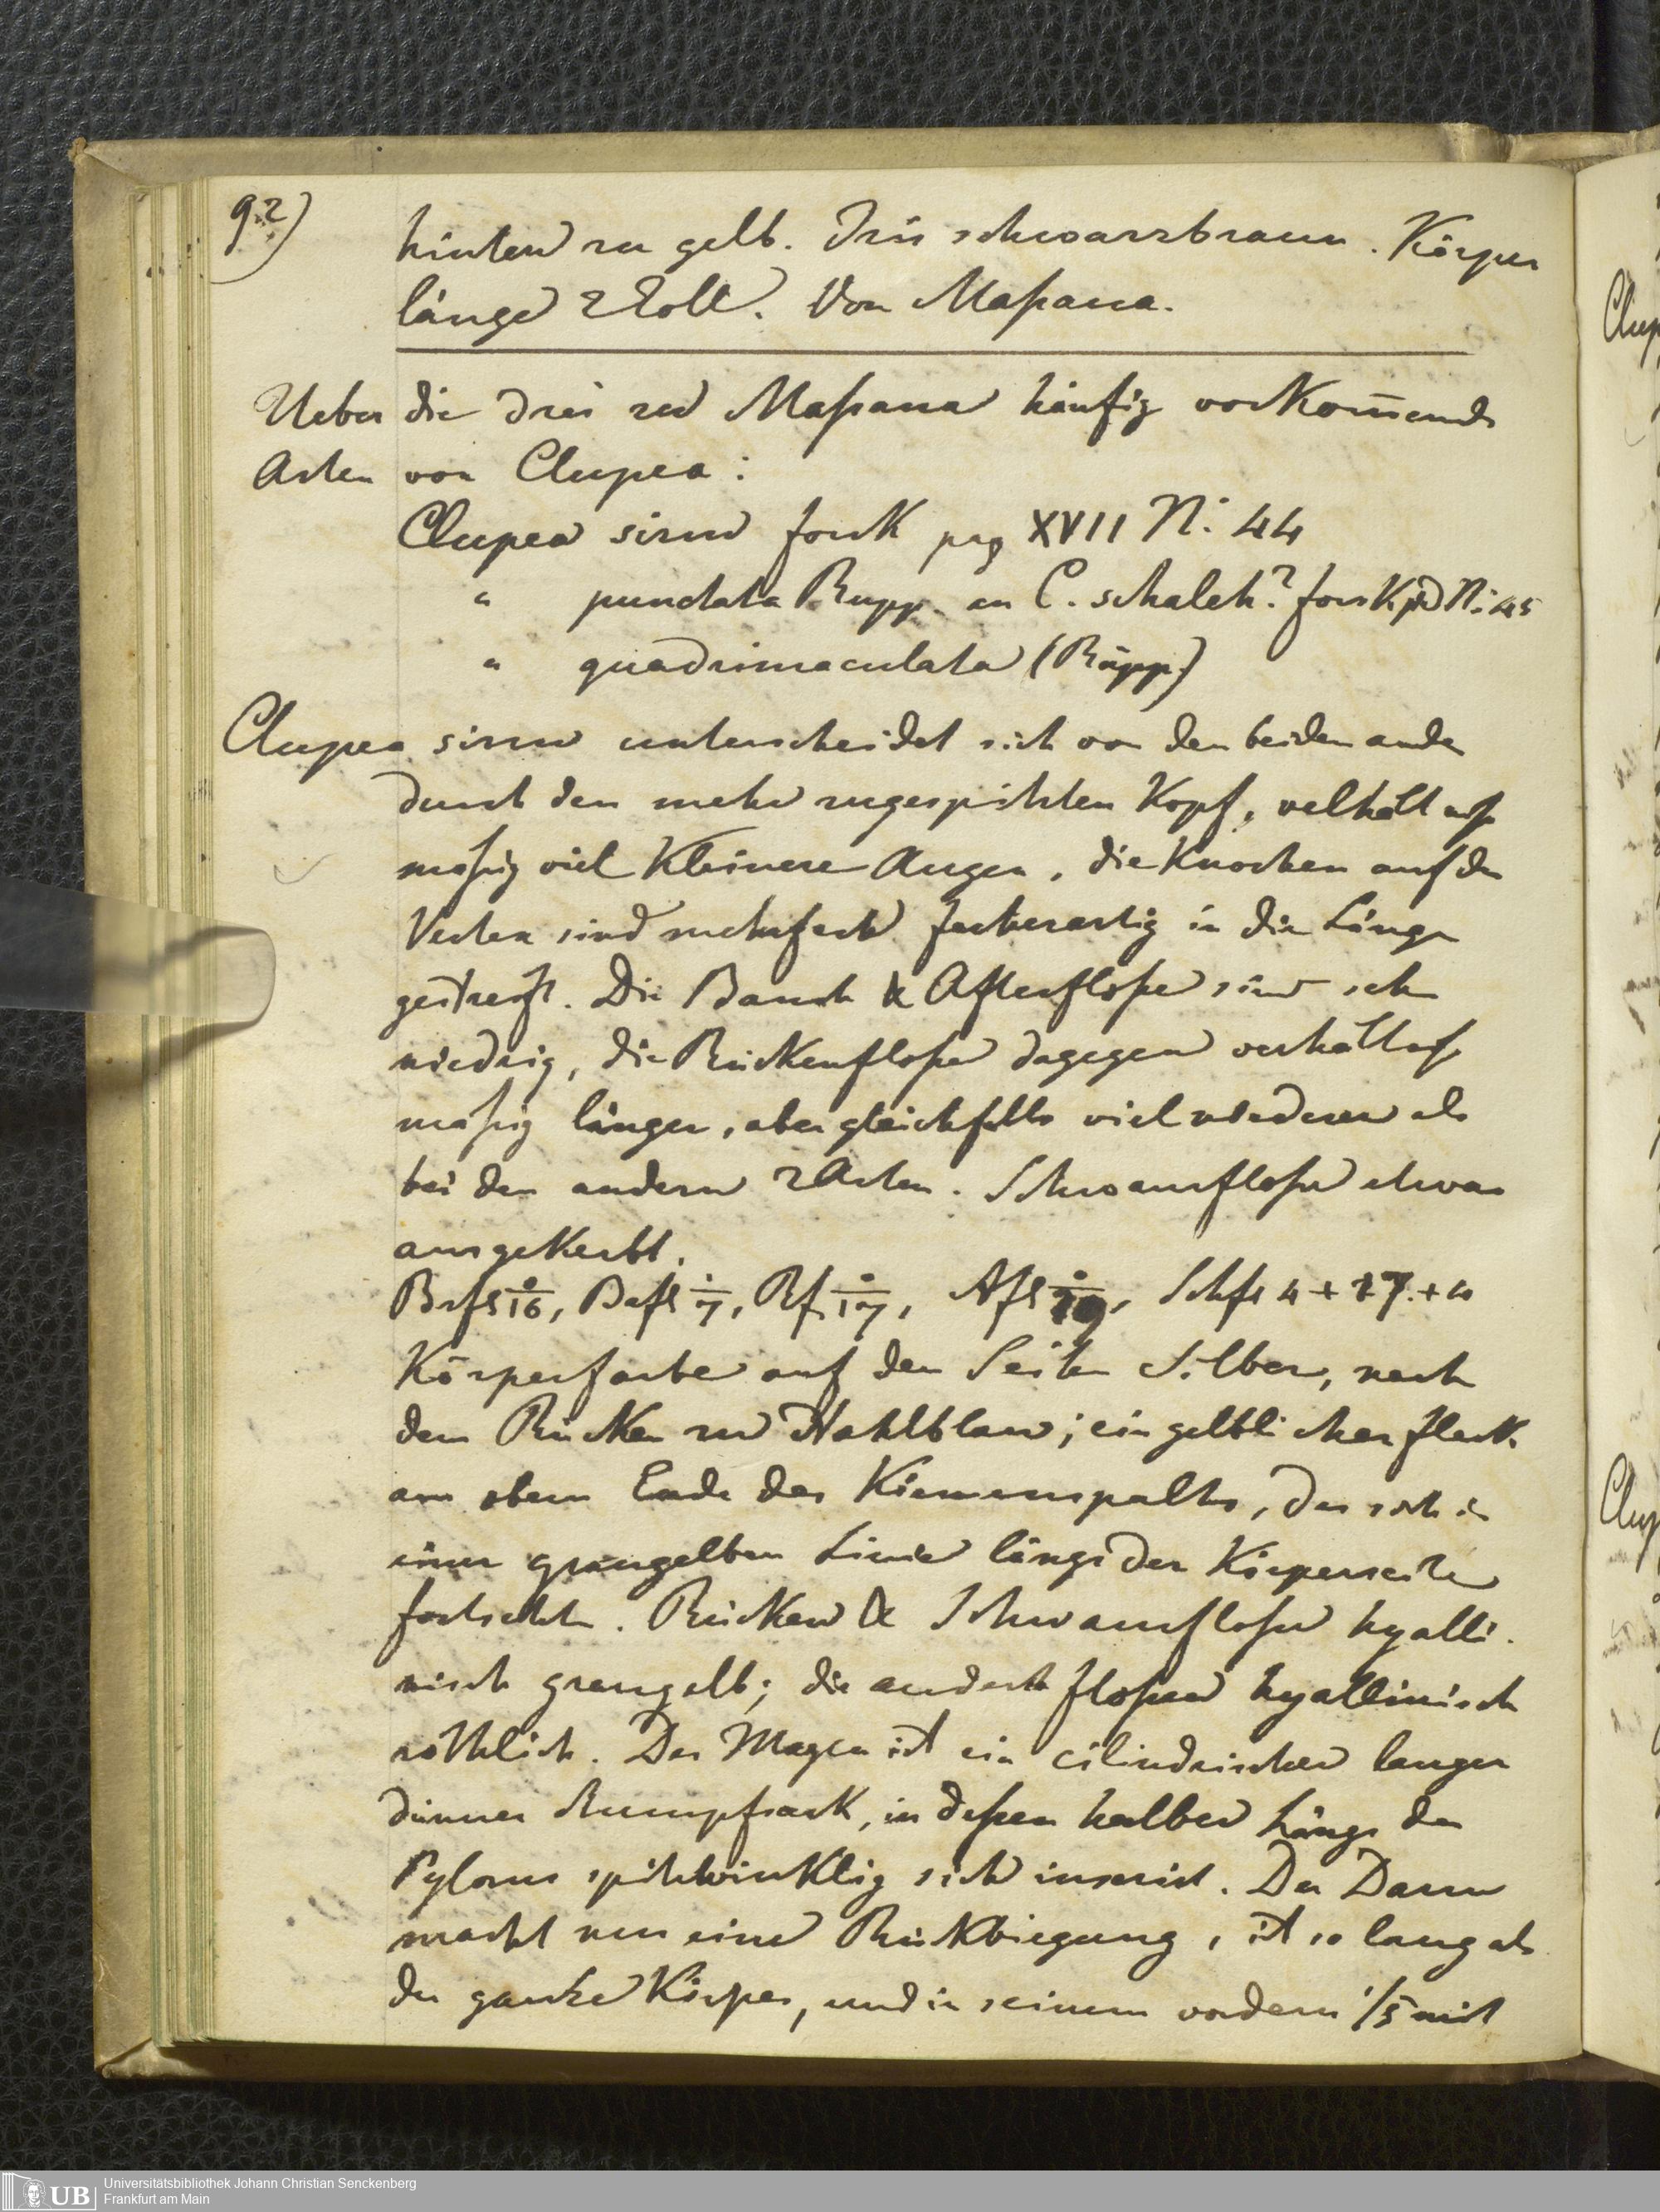 92)
hinten zu gelb. Iris schwarzbraun. Körper
länge 2 Zoll. Von Maßaua.
Ueber die drei zu Maßaua häufig vorkom̅ende
Arten von Clupea:
Clupea sirm forsk pag XVII N: 44
" punctata Rupp. an C. schaleh? forsk N: 45
" quadrimaculata (Rüpp.)
Clupea sirm unterscheidet sich von den beiden andern
durch den mehr zugespitzten Kopf, velhältniß
mäßig viel kleinere Augen, die Knochen auf dem
Vertex sind mehrfach fächerartig in die Länge
gestreift. Die Bauch & Afterfloße sind sehr
niedrig, die Rückenfloße dagegen verhältniß
mäßig länger, aber gleichfalls viel niederer als
bei den andern 2 Arten. Schwanzfloße etwas
ausgekerbt.
Brfl 0/16, Bafl 1/7, Rf 0/17, Afl 0/19, Schfl 4 + 17. + 4
Körperfarbe auf den Seiten Silber, nach
dem Rücken zu Stahlblau; ein gelblicher fleck
am obern Ende des Kiemenspalts, der sich in
einer grüngelben Linie längs der Körperseite
fortsetzt. Rücken & Schwanzfloße hyalli-
nisch grüngelb; die andern floßen hyallinisch
röthlich. Der Magen ist ein cilindrischer langer
dünner Stumpfsack, in deßen halber Länge der
Pylorus spitzwinklig sich inserirt. Der Darm
macht nur eine Rückbiegung, ist so lang als
der ganze Körper, und in seinem vordern 1/5 mit
Universitätsbibliothek Johann Christian Senckenberg
Frankfurt am Main
UB